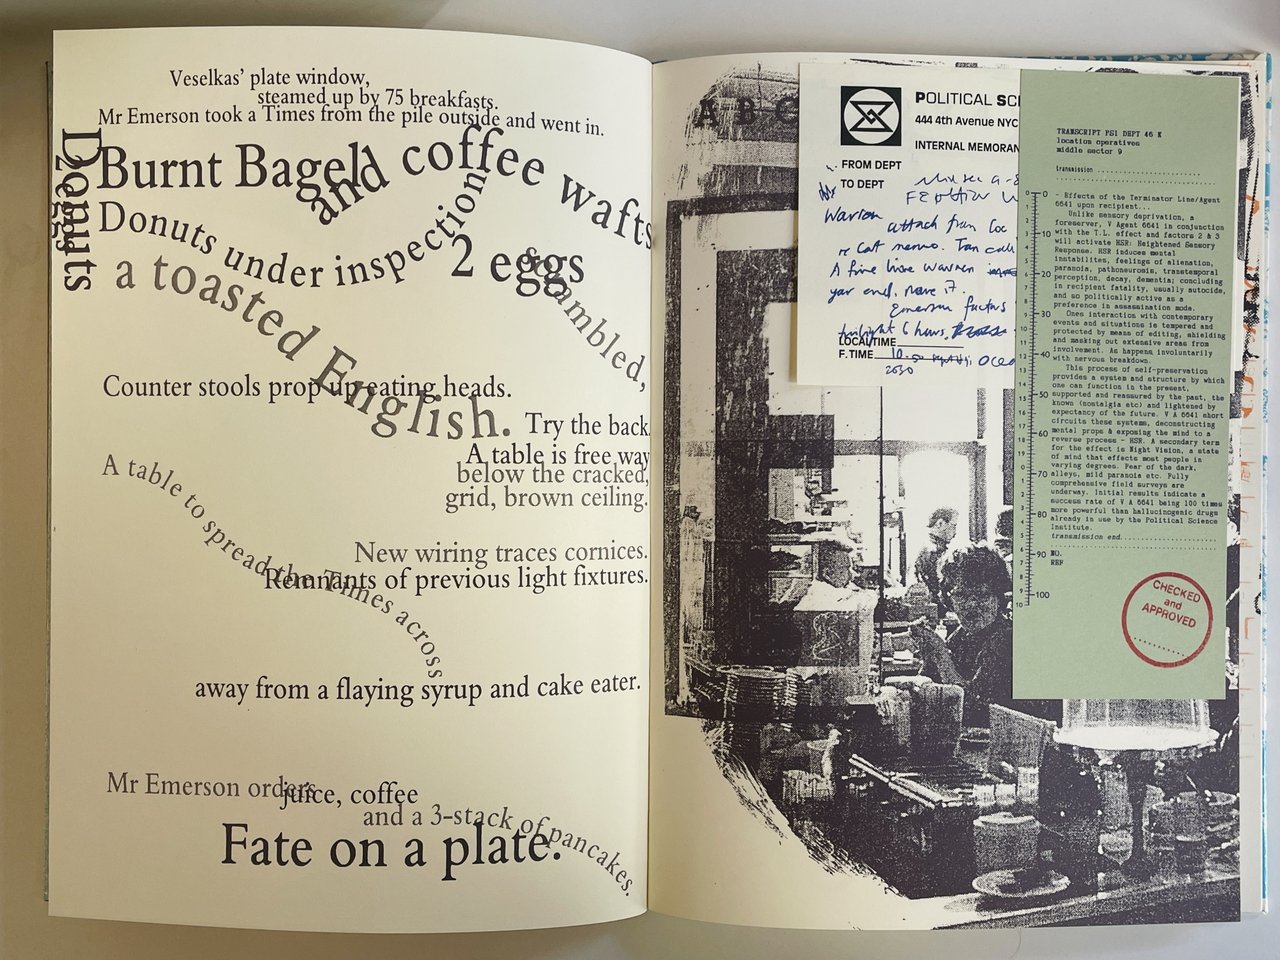 Veselkas' plate window,
steamed up by 75 breakfasts.
Mr Emerson took a Times from the pile outside and went in.
Donuts
2 eggs
Burnt Bagel
and
coffee wafts
Donuts under inspection
2 eggs
scrambled,
a toasted English.
Counter stools prop up eating heads.
Try the back
A table is free way
below the cracked,
grid, brown ceiling.
A table to spread the Times across
New wiring traces cornices.
Remnants of previous light fixtures.
away from a flaying syrup and cake eater.
Mr Emerson orders
juice, coffee
and a 3-stack of pancakes.
Fate on a plate.
ABC
POLITICAL SCI
444 4th Avenue NYC
INTERNAL MEMORAN
FROM DEPT
TO DEPT
Warren
attack from
A fine line Warren
year end.
Emerson factors
twilight 6 hours.
LOCAL TIME
F.TIME
2030
TRANSCRIPT PSI DEPT 46 K
location operatives
middle sector 9
transmission
- Effects of the Terminator Line/Agent
6641 upon recipient...
Unlike sensory deprivation, a
foreserver, V Agent 6641 in conjunction
with the T.L. effect and factors 2 & 3
will activate HSR: Heightened Sensory
Response. HSR induces mental
instabilites, feelings of alienation,
paranoia, pathoneurosis, transtemporal
perception, decay, dementia; concluding
in recipient fatality, usually autocide,
and so politically active as a
preference in assassination mode.
Ones interaction with contemporary
events and situations is tempered and
protected by means of editing, shielding
and masking out extensive areas from
involvement. As happens involuntarily
with nervous breakdown.
This process of self-preservation
provides a system and structure by which
one can function in the present,
supported and reassured by the past, the
known (nostalgia etc) and lightened by
expectancy of the future. V A 6641 short
circuits these systems, deconstructing
mental props & exposing the mind to a
reverse process - HSR. A secondary term
for the effect is Night Vision, a state
of mind that effects most people in
varying degrees. Fear of the dark,
alleys, mild paranoia etc. Fully
comprehensive field surveys are
underway. Initial results indicate a
success rate of V A 6641 being 100 times
more powerful than hallucinogenic drugs
already in use by the Political Science
Institute.
transmission end
NO.
REF
0
10
20
30
40
50
60
70
80
90
100
CHECKED
and
APPROVED